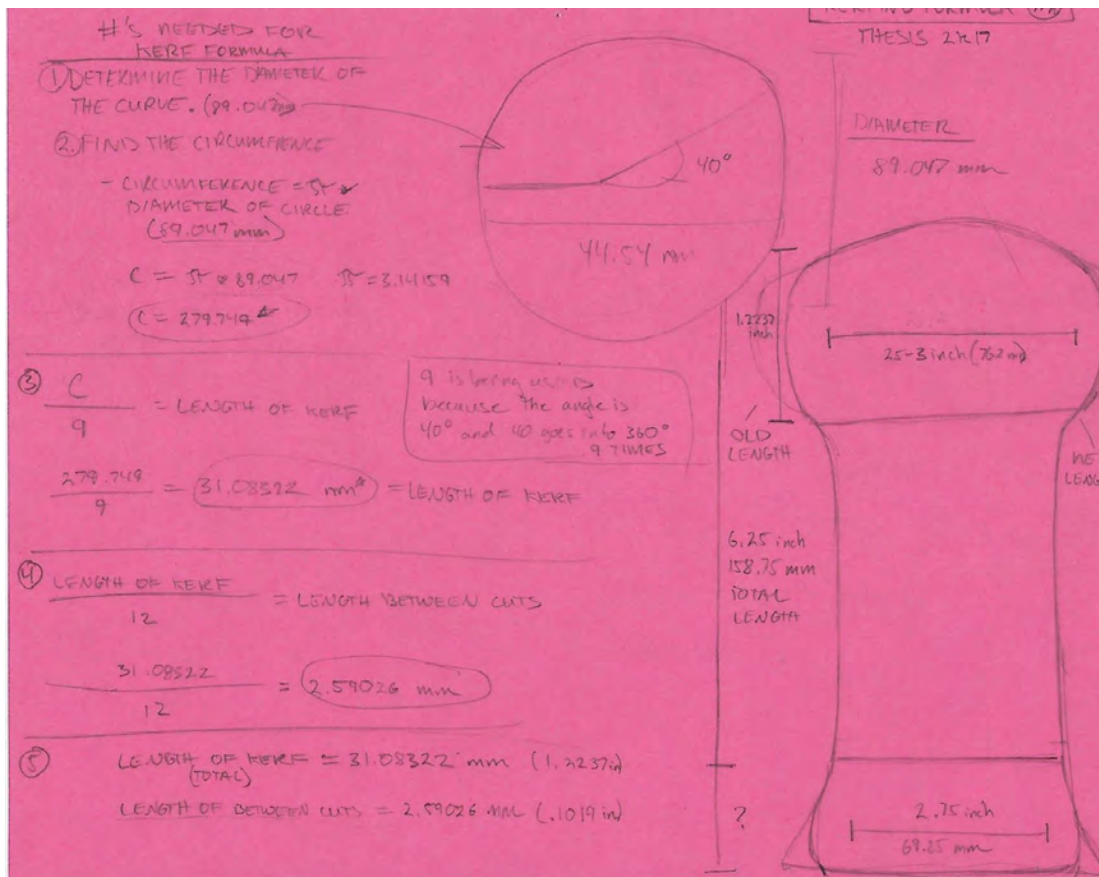 #'s NEEDED FOR
KERF FORMULA
① DETERMINE THE DIAMETER OF
THE CURVE. (89.047mm)
② FIND THE CIRCUMFERENCE
- CIRCUMFERENCE = π •
DIAMETER OF CIRCLE
(89.047mm)
C = π • 89.047 π = 3.14159
C = 279.749
③ C
9
= LENGTH OF KERF
279.749
9
= 31.08322 mm = LENGTH OF KERF
9 is being
because the angle is
40° and 40 goes into 360°
9 TIMES
④ LENGTH OF KERF
12
= LENGTH BETWEEN CUTS
31.08322
12
= 2.59026 mm
⑤ LENGTH OF KERF = 31.08322 mm (1.2237in)
(TOTAL)
LENGTH OF BETWEEN CUTS = 2.59026 MM (.1019 in)
40°
44.54 mm
FORMULA
THESIS 2k17
DIAMETER
89.047 mm
1.2237
inch
25-3inch
OLD
LENGTH
6.25 inch
158.75 mm
TOTAL
LENGTH
?
2.75 inch
69.25 mm